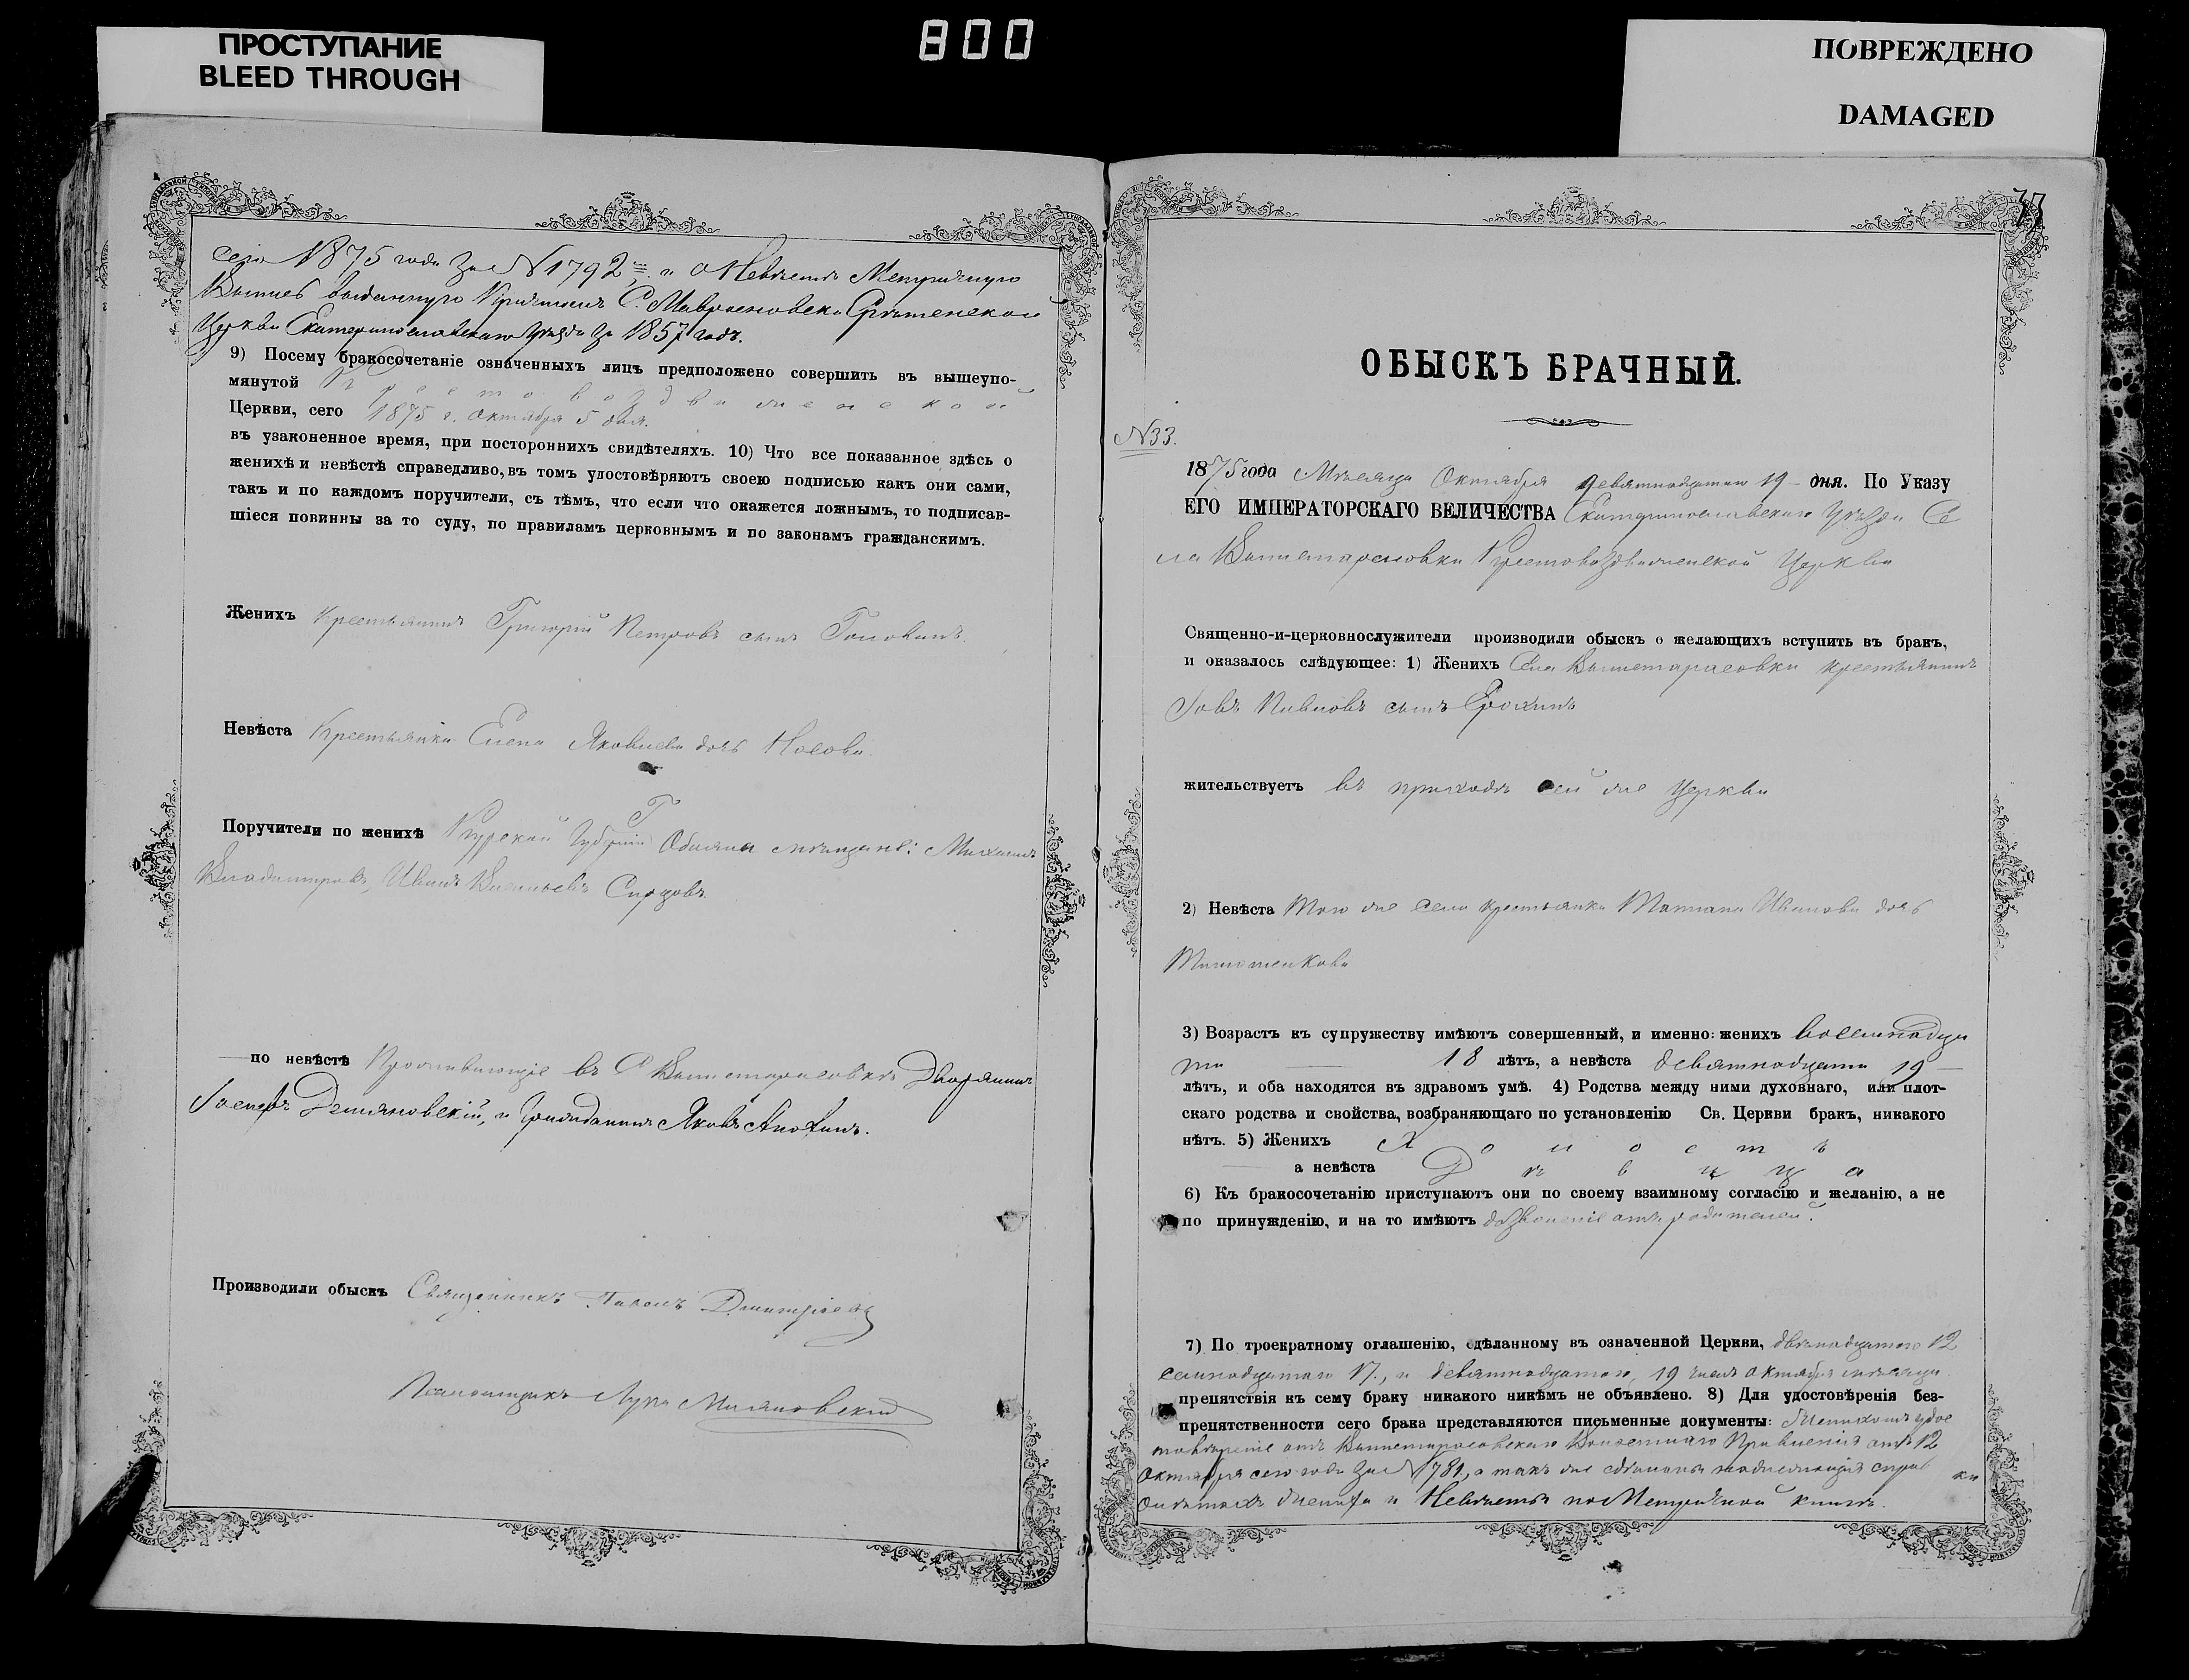 ПРОСТУПАНИЕ
BLEED THROUGH
800
ПОВРЕЖДЕНО
DAMAGED
сего 1875 года За №1792м. и о Невѣстѣ Метричную
Выпись выданную Причтомъ С. Маврthe Срѣтенской
Церкви Екатеринославскаго Уѣзда за 1857 годъ.
9) Посему бракосочетаніе означенныхъ лицъ предположено совершить въ вышеупо-
мянутой Крестовоздвиженской
Церкви, сего 1875 г. Октября 5 дня.
въ узаконенное время, при постороннихъ свидѣтеляхъ. 10) Что все показанное здѣсь о
женихѣ и невѣстѣ справедливо, въ томъ удостовѣряютъ своею подписью какъ они сами,
такъ и по каждомъ поручители, съ тѣмъ, что если что окажется ложнымъ, то подписав-
шіеся повинны за то суду, по правиламъ церковнымъ и по законамъ гражданскимъ.
Женихъ Крестьянинъ Григорій Петровъ сынъ Головинъ.
Невѣста Крестьянка Елена Яковлева дочь Носова.
Поручители по женихѣ Курской Губерніи Г. Обояна мѣщане: Михаилъ
Владимировъ, Иванъ Васильевъ
по невѣстѣ Проживающіе въ С. Вышетарасовкѣ Дворянинъ
Іосифъ Демяновскій, и Гражданинъ Яковъ Анохинъ.
Производили обыскъ Священникъ Павелъ Дмитріевъ
Псаломщикъ Лука
37
ОБЫСКЪ БРАЧНЫЙ.
№33.
1875 года Мѣсяца Октября девятнадцатаго 19 - дня. По Указу
ЕГО ИМПЕРАТОРСКАГО ВЕЛИЧЕСТВА Екатеринославскаго Уѣзда Се
ла Вышетарасовки Крестовоздвиженской Церкви
Священно-и-церковнослужители производили обыскъ о желающихъ вступить въ бракъ,
и оказалось слѣдующее: 1) Женихъ Села Вышетарасовки крестьянинъ
Іовъ Павловъ сынъ Ерохинъ
жительствуетъ въ приходѣ сей же Церкви
2) Невѣста Того же села крестьянка Татіана Иванова дочь
3) Возрастъ къ супружеству имѣютъ совершенный, и именно: женихъ восемнадца
ти 18 лѣтъ, а невѣста девятнадцати 19
лѣтъ, и оба находятся въ здравомъ умѣ. 4) Родства между ними духовнаго, или плот-
скаго родства и свойства, возбраняющаго по установленію Св. Церкви бракъ, никакого
нѣтъ. 5) Женихъ Холостъ
а невѣста Дѣвица
6) Къ бракосочетанію приступаютъ они по своему взаимному согласію и желанію, а не
по принужденію, и на то имѣютъ дозволеніе отъ родителей.
7) По троекратному оглашенію, сдѣланному въ означенной Церкви, двѣнадцатаго 12
семнадцатаго 17., и девятнадцатаго, 19 числъ Октября мѣсяца
препятствія къ сему браку никакого никѣмъ не объявлено. 8) Для удостовѣренія без-
препятственности сего брака представляются письменные документы: Женихомъ удос
товѣреніе отъ Вышетарасовскаго Волостнаго Правленія отъ 12
Октября сего года За №781, а такъ же сдѣланы надлежащія справ ки
о лѣтахъ Жениха и Невѣсты по Метрической книгѣ.